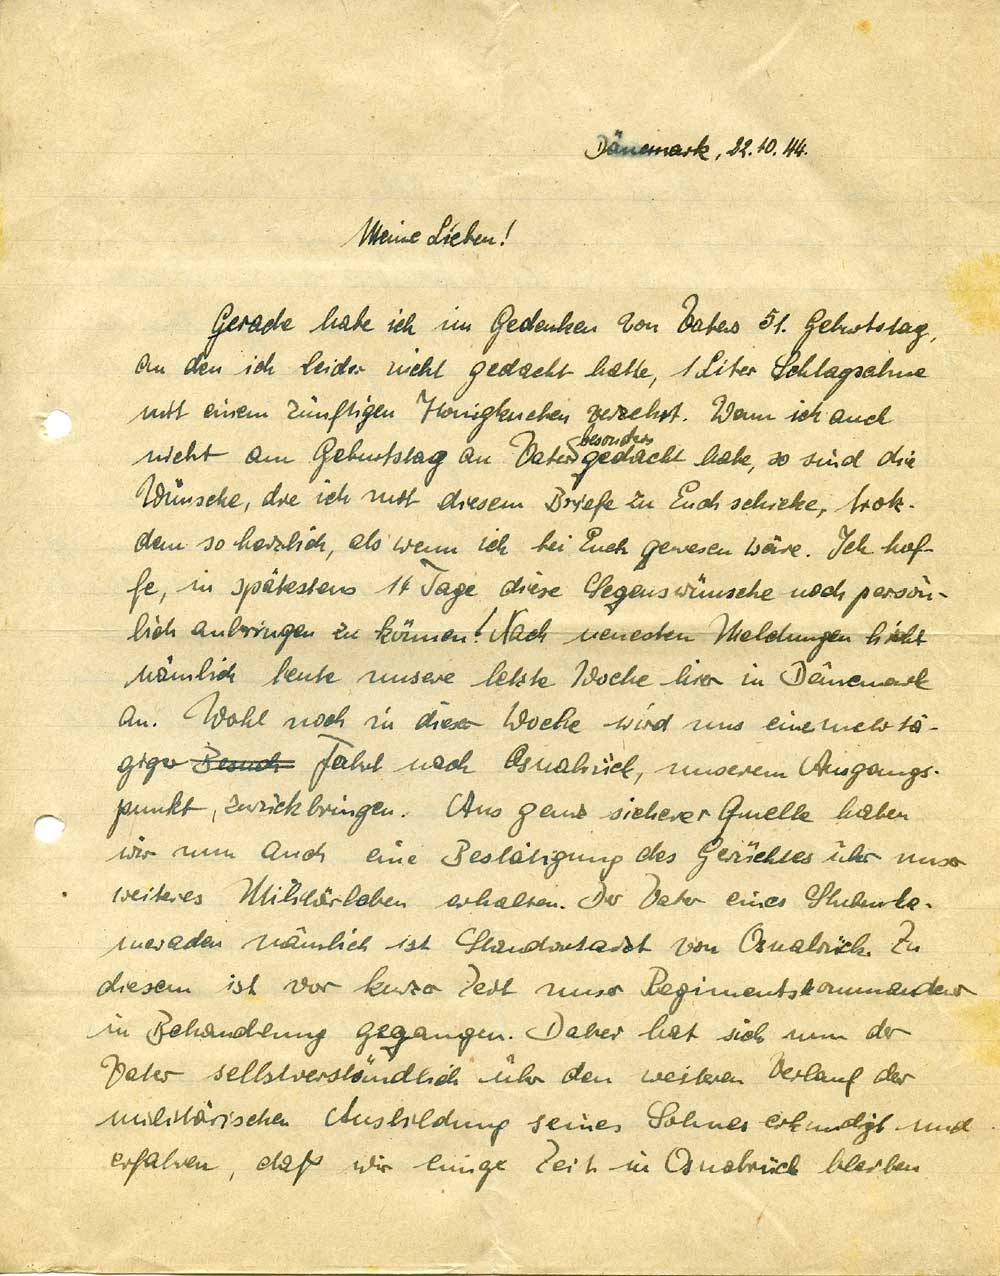 Dänemark, 22.10.44.
Meine Lieben!
Gerade habe ich im Gedenken von Vaters 51. Geburtstag,
an den ich leider nicht gedacht hatte, 1 Liter Schlagsahne
mit einem zünftigen Honigkuchen verzehrt. Wenn ich auch
nicht am Geburtstag an Vater besonders gedacht habe, so sind die
Wünsche, die ich mit diesem Briefe zu Euch schicke, trotz-
dem so herzlich, als wenn ich bei Euch gewesen wäre. Ich hof-
fe, in spätestens 14 Tage diese Segenswünsche noch persön-
lich anbringen zu können! Nach neuesten Meldungen bricht
nämlich heute unsere letzte Woche hier in Dänemark
an. Wohl noch in dieser Woche wird uns eine mehrtä-
giger Besuch Fahrt nach Osnabrück, unserem Ausgangs-
punkt, zurückbringen. Aus ganz sicherer Quelle haben
wir nun auch eine Bestätigung des Gerüchtes über unser
weiteres Militärleben erhalten. Der Vater eines Stubenka-
meraden nämlich ist Standortarzt von Osnabrück. Zu
diesem ist vor kurzer Zeit unser Regimentskommandeur
in Behandlung gegangen. Dabei hat sich nun der
Vater selbstverständlich über den weiteren Verlauf der
militärischen Ausbildung seines Sohnes erkundigt und
erfahren, daß wir einige Zeit in Osnabrück bleiben